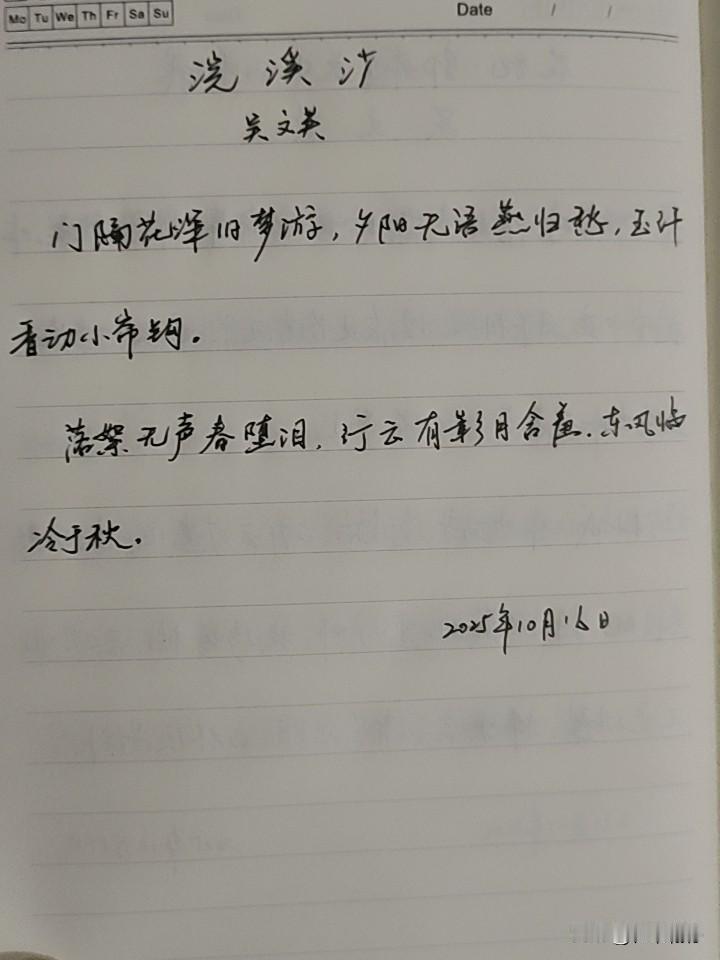 Mo Tu We Th Fr Sa Su
Date / /
浣溪沙
吴文英
门隔花深旧梦游，夕阳无语燕归愁，玉纤
香动小帘钩。
落絮无声春堕泪，行云有影月含羞，东风临
夜冷于秋。
2025年10月16日